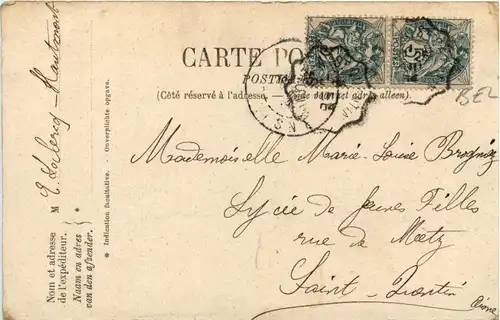 CARTE PO
POSTK
(Côté réservé à l'adresse. — adres alleen)
BEL
Mademoiselle Marie-Louise
Lycée de Jeunes Filles
rue de Metz
Saint-Quentin
Aisne
M E. Leclercq — Hautmont
Nom et adresse
de l'expéditeur.
Naam en adres
van den afzender.
* Indication facultative. - Onverplichte opgave.